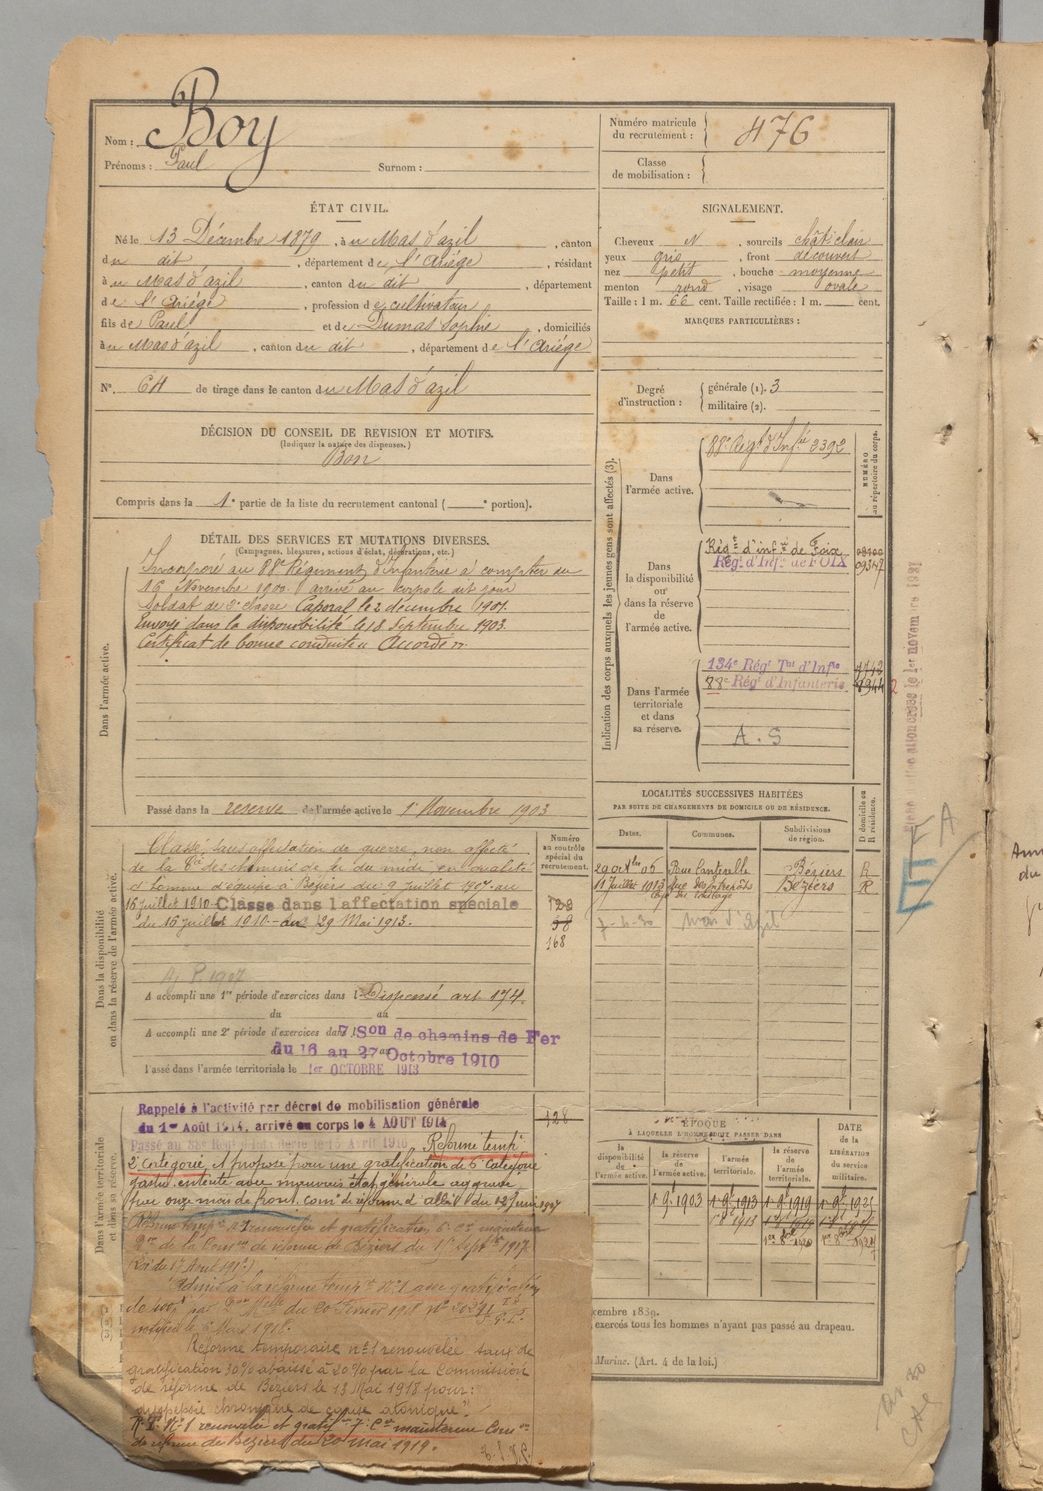 Nom : Boy
Prénoms : Paul Surnom :
Numéro matricule du recrutement : 476
Classe de mobilisation :
ÉTAT CIVIL.
Né le 13 Décembre 1879, à u Mas d'azil, canton
du dit, département de l'Ariége, résidant
à u Mas d'azil, canton du dit, département
de l'Ariége, profession de cultivateur
fils de Paul et de Dumas Sophie, domiciliés
à u Mas d'azil, canton du dit, département de l'Ariége
N° 64 de tirage dans le canton du Mas d'azil
SIGNALEMENT.
Cheveux N, sourcils chât clair
yeux gris, front découvert
nez petit, bouche moyenne
menton rond, visage ovale
Taille : 1 m. 66 cent. Taille rectifiée : 1 m. cent.
MARQUES PARTICULIÈRES :
Degré d'instruction : générale (1). 3
militaire (2).
DÉCISION DU CONSEIL DE REVISION ET MOTIFS.
(Indiquer la nature des dispenses.)
Bon
Compris dans la 1e partie de la liste du recrutement cantonal ( e portion).
DÉTAIL DES SERVICES ET MUTATIONS DIVERSES.
(Campagnes, blessures, actions d'éclat, décorations, etc.)
Dans l'armée active.
Incorporé au 88e Régiment d'Infanterie à compter du
16 Novembre 1900. arrivé au corps le dit jour
Soldat de 2e classe Caporal le 2 décembre 1901.
Envoyé dans la disponibilité le 18 Septembre 1903.
Certificat de bonne conduite " Accordé ".
Passé dans la réserve de l'armée active le 1er Novembre 1903
Indication des corps auxquels les jeunes gens sont affectés (3).
NUMÉRO au répertoire du corps.
Dans l'armée active.
88e Régt d'Infie 3392
Dans la disponibilité ou dans la réserve de l'armée active.
Régt d'infie de Foix
Régt d'Infie de FOIX 09347
Dans l'armée territoriale et dans sa réserve.
134e Régt Tal d'Infie 4742
88e Régt d'Infanterie
A. S
LOCALITÉS SUCCESSIVES HABITÉES
PAR SUITE DE CHANGEMENTS DE DOMICILE OU DE RÉSIDENCE.
Dates. Communes. Subdivisions de région. D domicile ou R résidence.
Béziers R
Béziers R
7-4-30 Mas d'Azil
Dans la disponibilité ou dans la réserve de l'armée active.
Numéro au contrôle spécial du recrutement.
Classé sans affectation de guerre, non affecté
de la Cie des chemins de fer du midi, en qualité
d'homme d'équipe à Béziers du 9 Juillet au
16 juillet 1910 Classé dans l'affectation spéciale
du 16 juillet 1910 au 29 Mai 1913.
168
A accompli une 1re période d'exercices dans l Dispensé art. 174.
du au
A accompli une 2e période d'exercices dans l 7 Son de chemins de Fer
du 16 au 27 Octobre 1910
Passé dans l'armée territoriale le 1er OCTOBRE 1913
Dans l'armée territoriale et dans sa réserve.
Rappelé à l'activité par décret de mobilisation générale
du 1er Août 1914, arrivé au corps le 4 AOUT 1914 128
Passé au 88e Régt d'Infanterie le 15 Avril 1916 Réforme tempre
2e catégorie, et proposé pour une gratification de 6e catégorie
gastro entérite avec mauvais état général aggravé
par onze mois de front, comon de réforme d'Albi du 12 Juin 1917
Réforme tempre n° 1 renouvelée et gratification 6e ce maintenue
on de la Comon de réforme de Béziers du 1er Septbre 1917.
Admis à la réforme tempre N° 1 avec gratification
notifiée le Mars 1918.
Réforme temporaire n° 1 renouvelée taux de
gratification 30% abaissé à 20% par la Commission
de réforme de Béziers le 13 Mai 1918 pour :
dyspepsie chronique de cause atonique."
R. T. N° 1 renouvelée et gratifon 7e Cie maintenue Comon
de réforme de Béziers du 20 mai 1919.
ÉPOQUE
À LAQUELLE L'HOMME DOIT PASSER DANS
la disponibilité de l'armée active. la réserve de l'armée active. l'armée territoriale. la réserve de l'armée territoriale.
DATE de la LIBÉRATION du service militaire.
1 9bre 1903 1 9bre 1913 1 9bre 1919 1 9bre 1925
cembre 1839.
exercés tous les hommes n'ayant pas passé au drapeau.
Marine. (Art. 4 de la loi.)